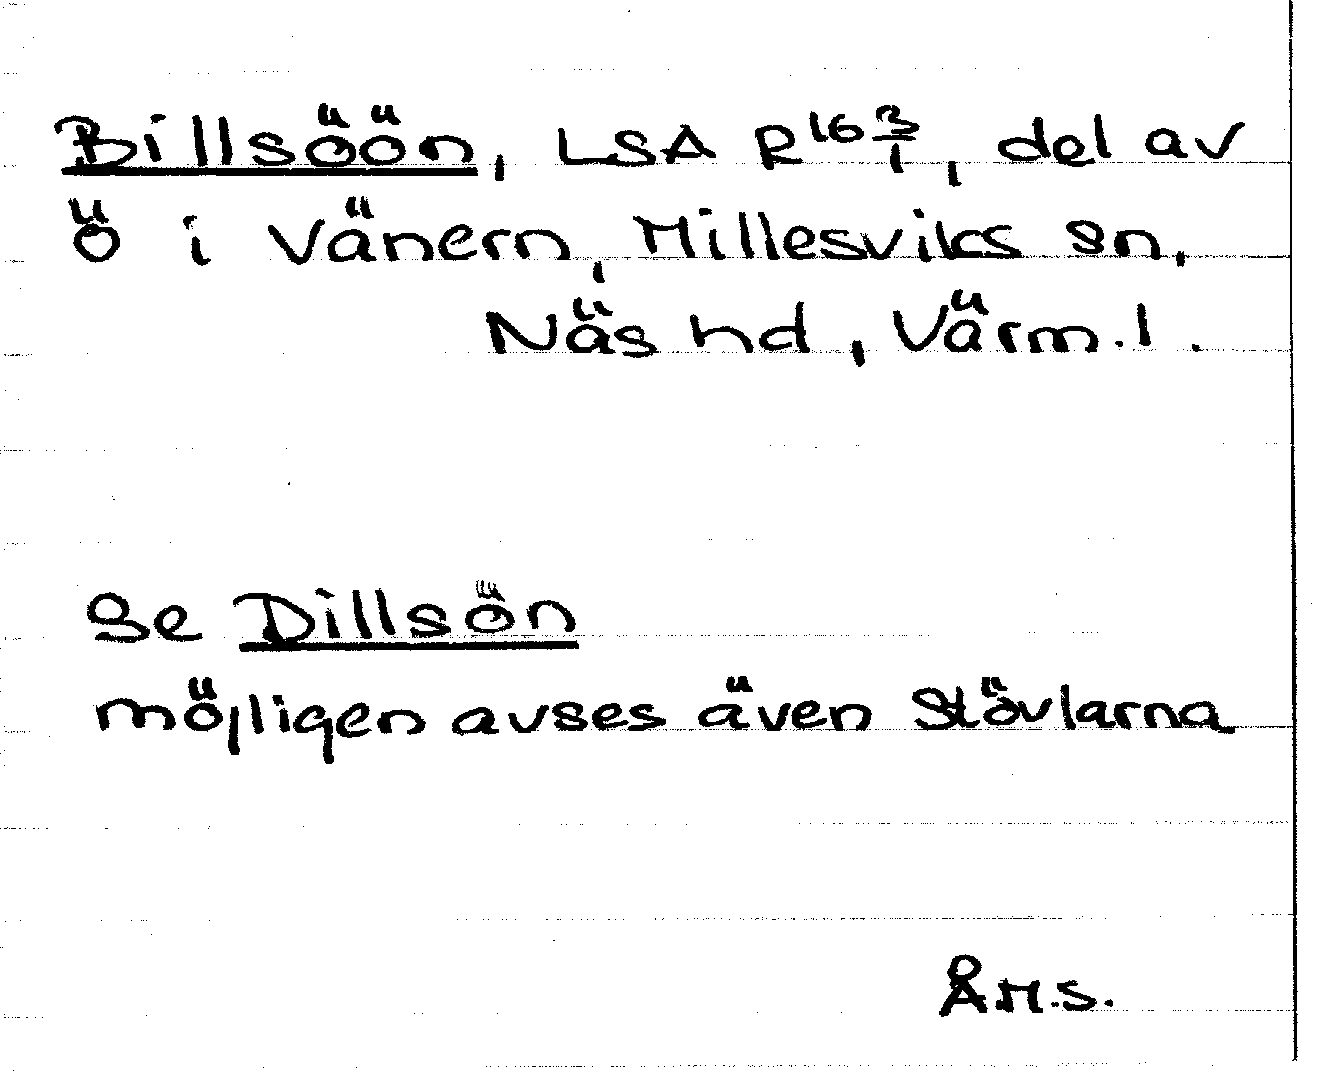 Billsöön, LSA R16 3/1, del av
ö i Vänern, Millesviks sn,
Näs hd, Värm. l.
Se Dillsön
möjligen avses även Stövlarna
Å.M.S.